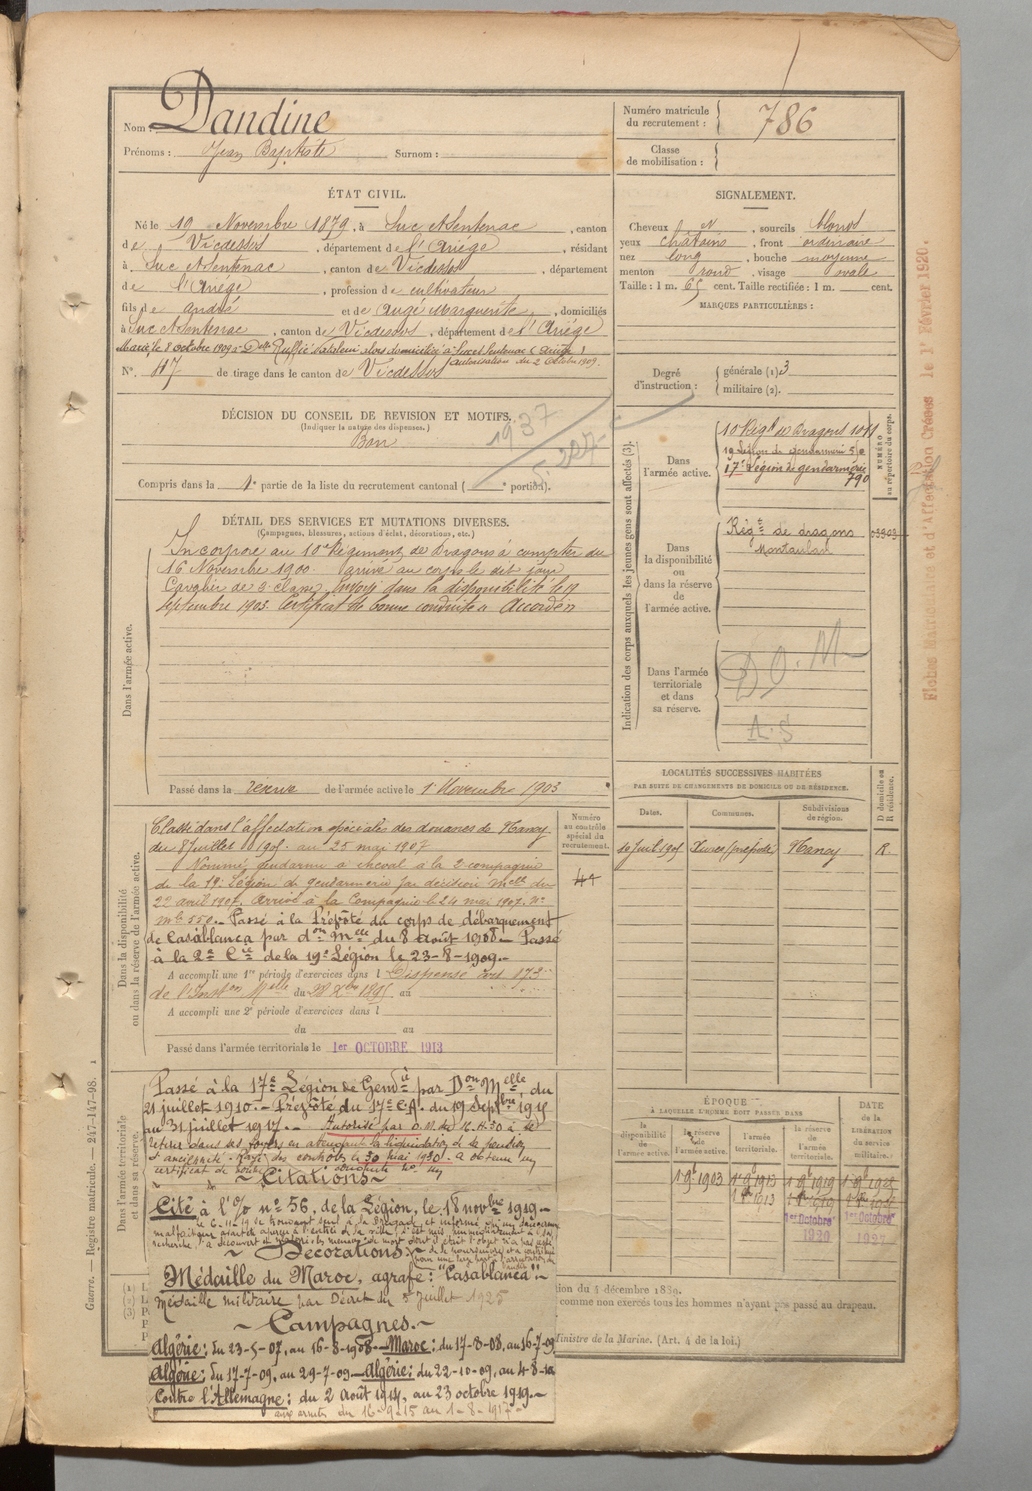 Nom : Dandine
Prénoms : Jean Baptiste Surnom :
Numéro matricule du recrutement : 786
Classe de mobilisation :
ÉTAT CIVIL.
Né le 19 Novembre 1879, à Suc et Sentenac, canton
de Vicdessos, département de l'Ariège, résidant
à Suc et Sentenac, canton de Vicdessos, département
de l'Ariège, profession de cultivateur
fils de André et de Augé Marguerite, domiciliés
à Suc et Sentenac, canton de Vicdessos, département de l'Ariège
Marié, le 8 octobre 1909 à Delle Ruffié Natalem alors domiciliée à Suc et Sentenac (Ariège)
autorisation du 2 Octobre 1909.
N°. 47 de tirage dans le canton de Vicdessos
SIGNALEMENT.
Cheveux N, sourcils blonds
yeux châtains, front ordinaire
nez long, bouche moyenne
menton rond, visage ovale
Taille : 1 m. 65 cent. Taille rectifiée : 1 m. cent.
MARQUES PARTICULIÈRES :
Degré d'instruction : générale (1) 3
militaire (2).
DÉCISION DU CONSEIL DE REVISION ET MOTIFS.
(Indiquer la nature des dispenses.)
Bon
1937
Compris dans la 1e partie de la liste du recrutement cantonal ( portion).
DÉTAIL DES SERVICES ET MUTATIONS DIVERSES.
(Campagnes, blessures, actions d'éclat, décorations, etc.)
Dans l'armée active.
Incorporé au 10e Régiment de Dragons à compter du
16 Novembre 1900. Arrivé au corps le dit jour
Cavalier de 2e classe. Envoyé dans la disponibilité le 19
septembre 1903. Certificat de bonne conduite Accordé
Passé dans la réserve de l'armée active le 1er Novembre 1903
Indication des corps auxquels les jeunes gens sont affectés (3).
NUMÉRO au répertoire du corps.
Dans l'armée active.
10e Régt de Dragons 1041
19 Légion de gendarmerie 550
17e Légion de gendarmerie
790
Dans la disponibilité ou dans la réserve de l'armée active.
Régt de dragons 03903
Montauban
Dans l'armée territoriale et dans sa réserve.
D.O.M
A.S
Fiches Matricules et d'Affectation Créées le 1er Février 1920.
Dans la disponibilité ou dans la réserve de l'armée active.
Classé dans l'affectation spéciale des douanes de Nancy
du 8 Juillet 1905 au 25 mai 1907
Nommé gendarme à cheval à la 2e compagnie
de la 19e Légion de gendarmerie par décision melle du
22 avril 1907. Arrivé à la Compagnie le 24 mai 1907. N°
mle 550. - Passé à la Prévôté du corps de débarquement
de Casablanca par don mlle du 8 août 1908 - Passé
à la 2e Cie de la 19e Légion le 23-8-1909.-
A accompli une 1re période d'exercices dans l Dispensé art 173
de l'Inston Melle du 28 Xbre 1895 au
A accompli une 2e période d'exercices dans l
du au
Passé dans l'armée territoriale le 1er OCTOBRE 1913
Numéro au contrôle spécial du recrutement.
LOCALITÉS SUCCESSIVES HABITÉES
PAR SUITE DE CHANGEMENTS DE DOMICILE OU DE RÉSIDENCE.
Dates. Communes. Subdivisions de région. D domicile ou R résidence.
10 Juil. 1905 Nancy R.
ÉPOQUE
À LAQUELLE L'HOMME DOIT PASSER DANS
la disponibilité de l'armée active. la réserve de l'armée active. l'armée territoriale. la réserve de l'armée territoriale. DATE de la LIBÉRATION du service militaire.
1 9bre 1903 1 9bre 1913 1 9bre 1919 1 9bre 1925
1er Octobre 1920 1er Octobre 1927
Dans l'armée territoriale et dans sa réserve.
Passé à la 17e Légion de Gendie par Don Melle du
21 juillet 1910. - Prévôté du 17e C.A. du 19 Septbre 1915
au 31 juillet 1917. - Autorisé par D.M. du à se
retirer dans ses foyers en attendant la liquidation de sa pension
d'ancienneté - Rayé des contrôles le 30 mai 1930. - A obtenu un
certificat de bonne conduite
~ Citations ~
Cité à l'O/ n° 56, de la Légion, le 18 novbre 1919.-
~ Décorations. ~
Médaille du Maroc, agrafe : "Casablanca".-
Médaille militaire par Décret du 5 Juillet 1925
~ Campagnes. ~
Algérie : du 23-5-07, au 16-8-1908.- Maroc : du 17-8-08, au 16-7-09
Algérie : du 17-7-09, au 29-7-09 - Algérie : du 22-10-09, au 4-8-10
Contre l'Allemagne : du 2 Août 1914, au 23 octobre 1919.-
aux armées du 16-9-15 au 1-8-1917
Guerre. — Registre matricule. — 247-147-98. 1
comme non exercés tous les hommes n'ayant pas passé au drapeau.
Ministre de la Marine. (Art. 4 de la loi.)